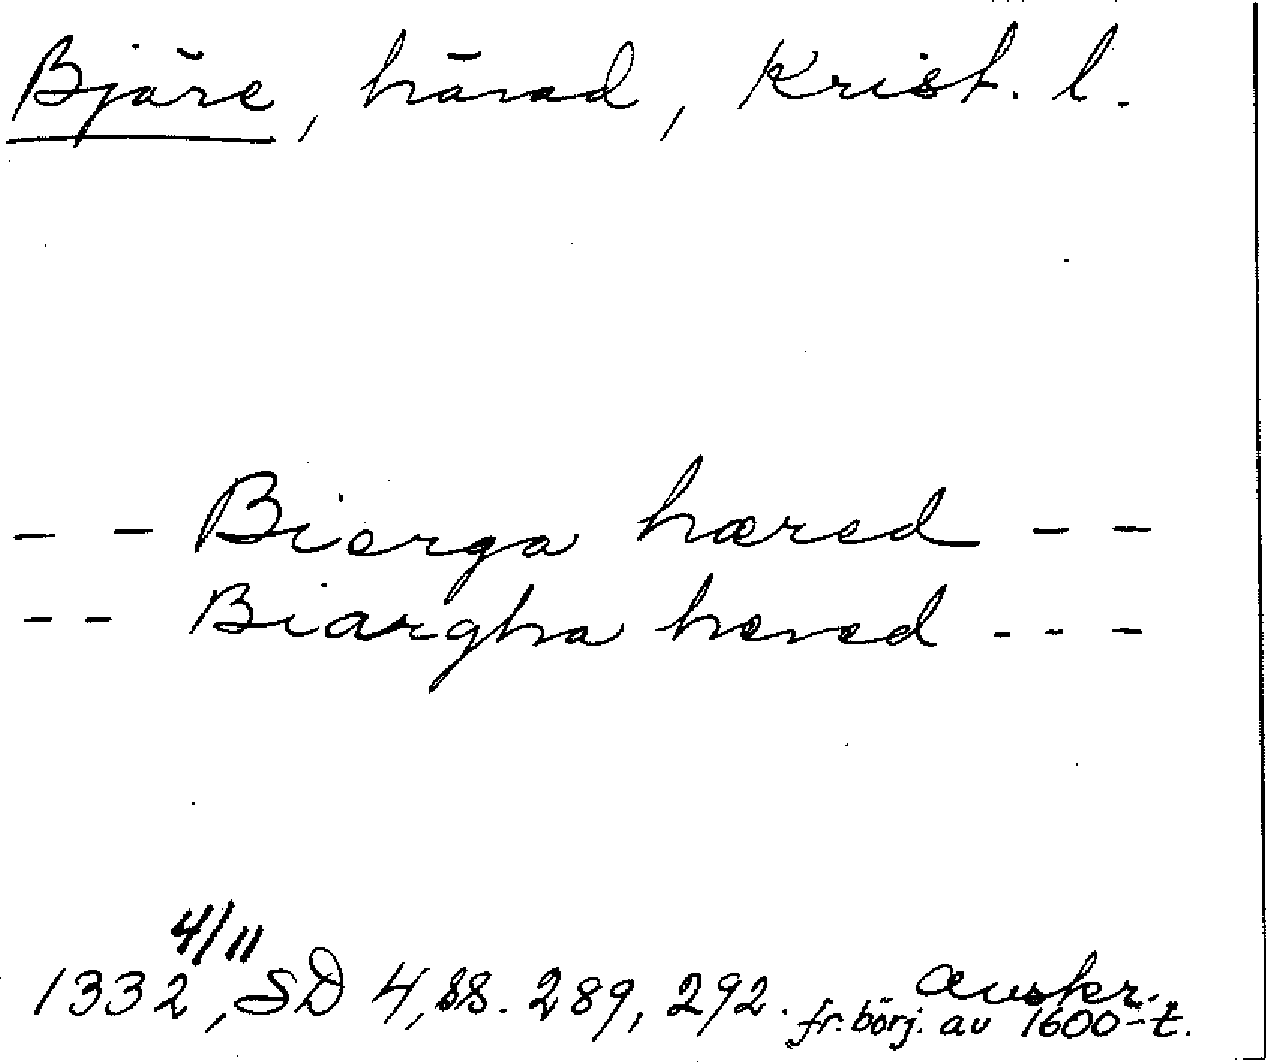 Bjäre, härad, Krist. l.
- - Bierga hæred - -
- - Biargha hered - - -
4/11
1332, SD 4, ss. 289, 292. avskr.
fr. börj. av 1600-t.